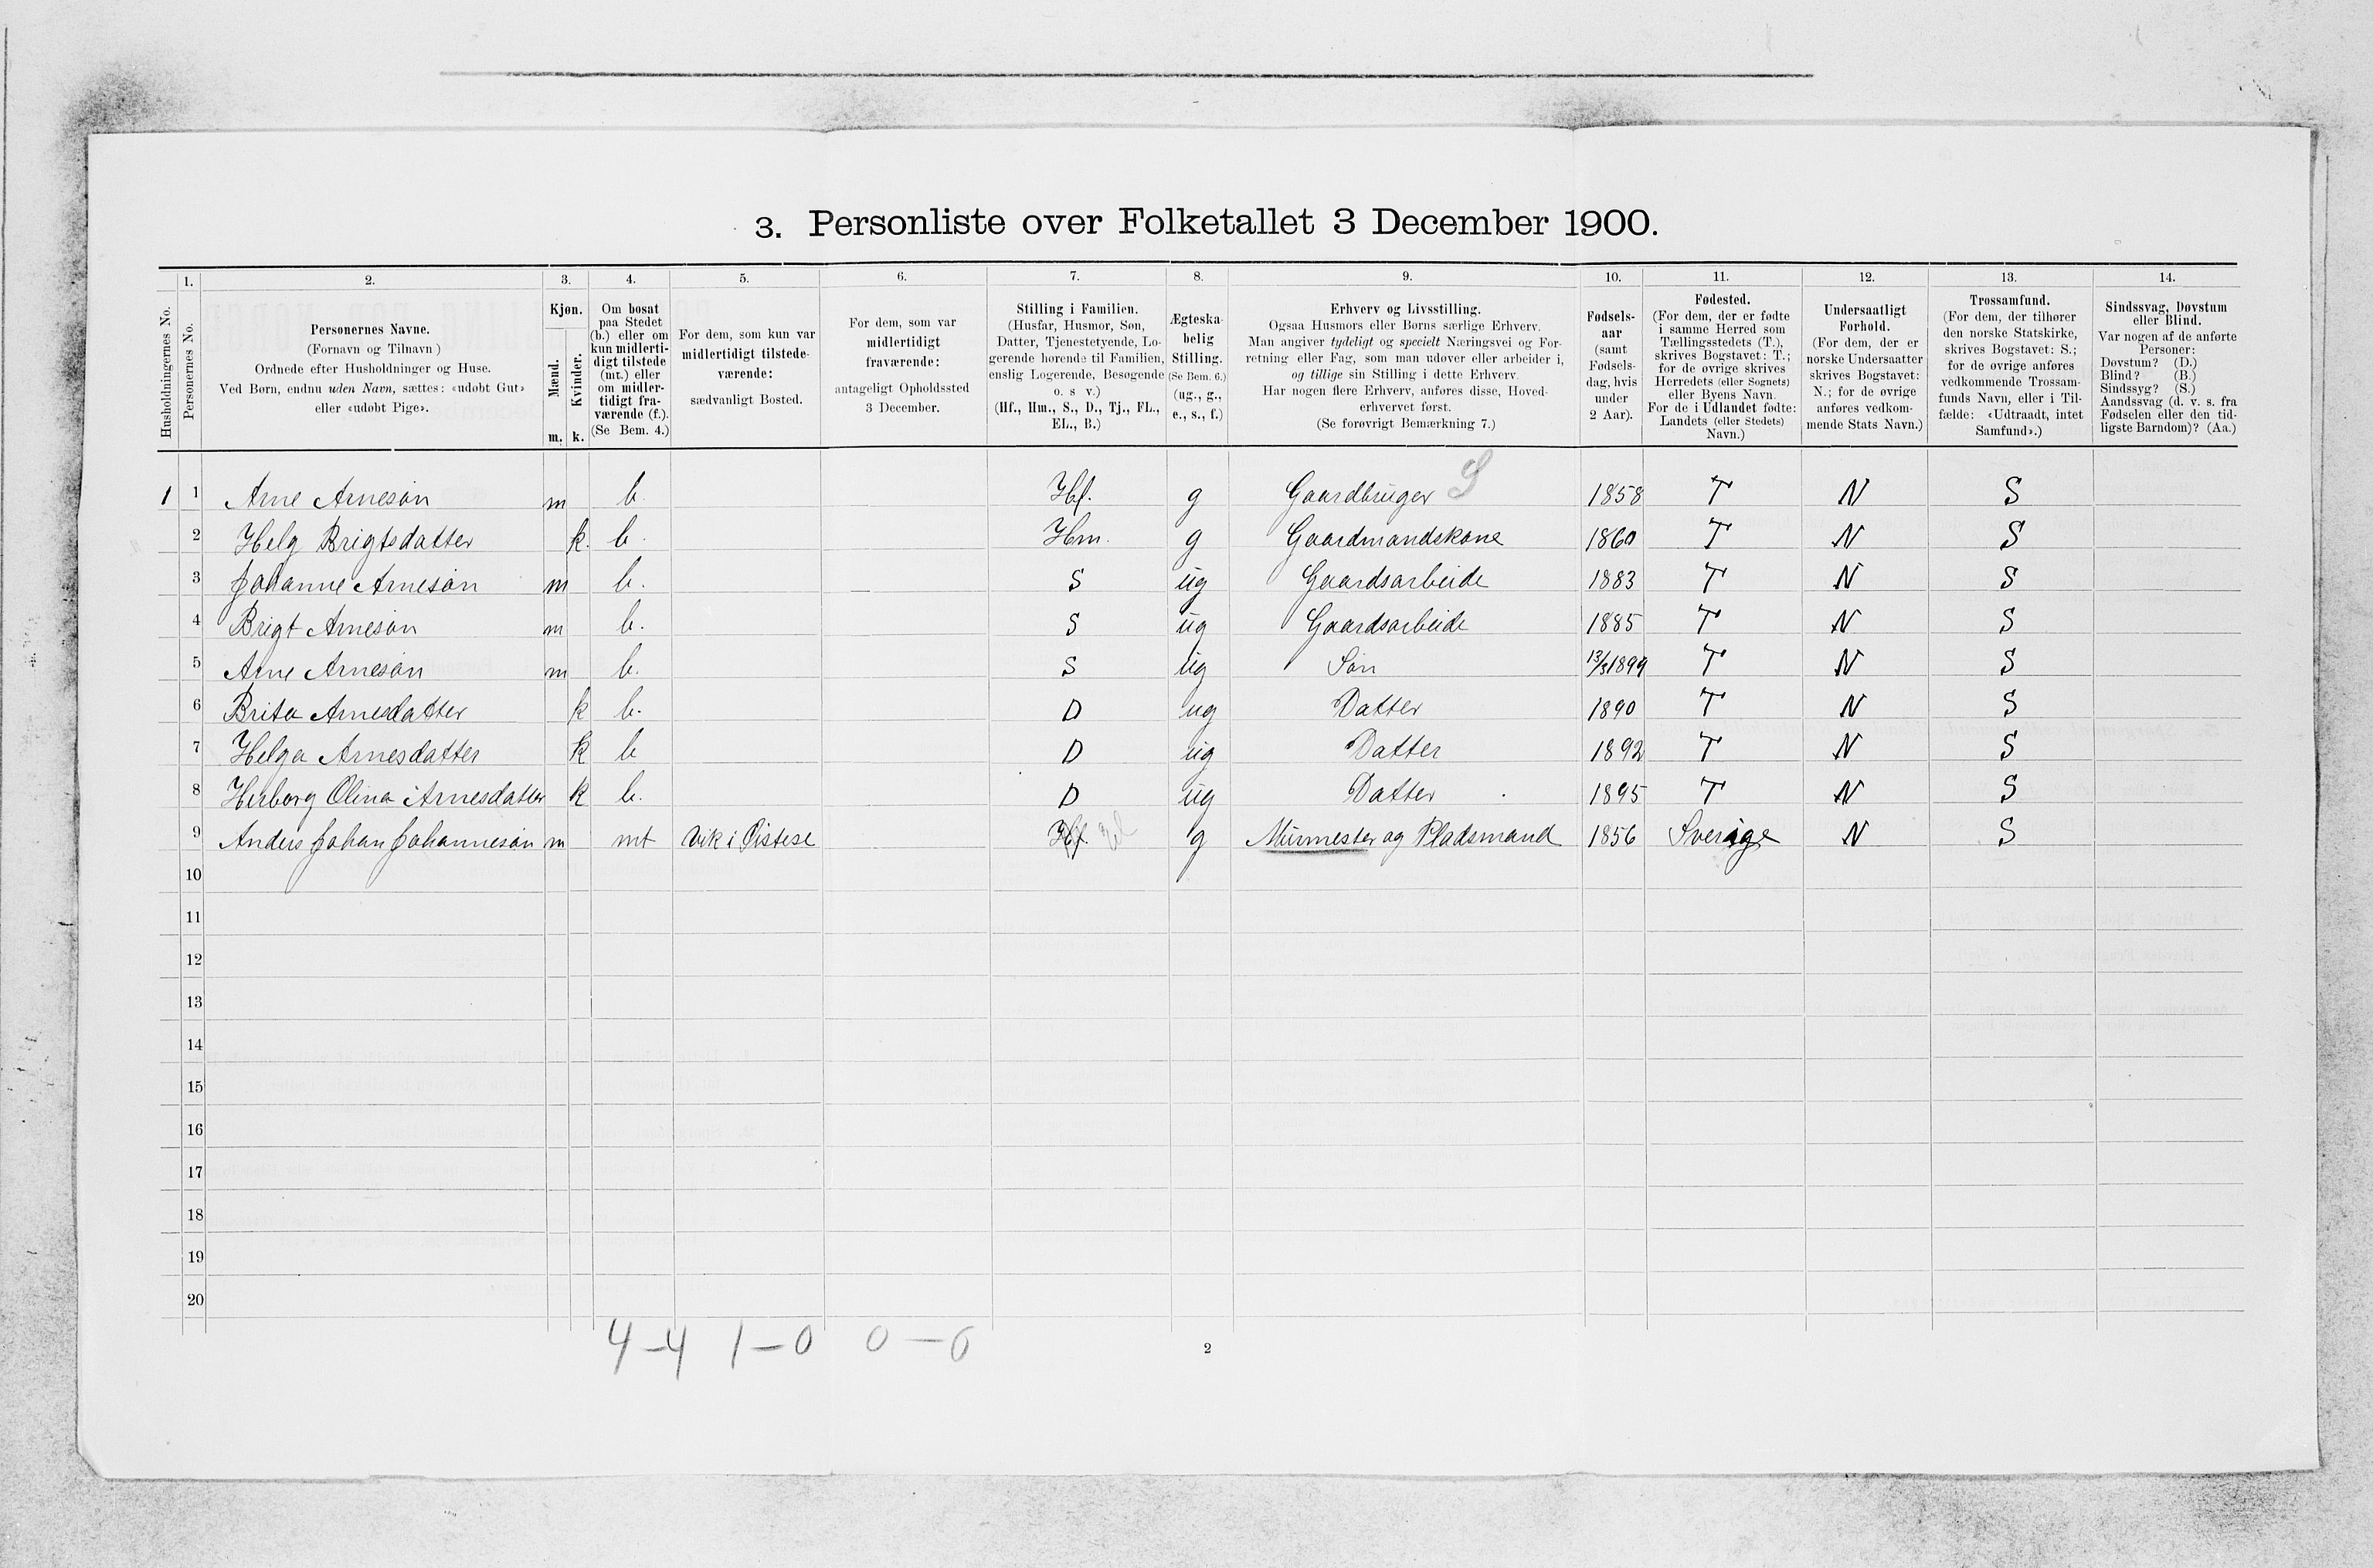 3. Personliste over Folketallet 3 December 1900.
Husholdningernes No.
1.
Personernes No.
2.
Personernes Navne.
(Fornavn og Tilnavn)
Ordnede efter Husholdninger og Huse.
Ved Børn, endnu uden Navn, sættes: «udøbt Gut»
eller «udøbt Pige».
3.
Kjøn.
Mænd.
Kvinder.
m.
k.
4.
Om bosat
paa Stedet
(b.) eller om
kun midlerti-
digt tilstede
(mt.) eller
om midler-
tidigt fra-
værende (f.).
(Se Bem. 4.)
5.
For dem, som kun var
midlertidigt tilstede-
værende:
sædvanligt Bosted.
6.
For dem, som var
midlertidigt
fraværende:
antageligt Opholdssted
3 December.
7.
Stilling i Familien.
(Husfar, Husmor, Søn,
Datter, Tjenestetyende, Lo-
gerende hørende til Familien,
enslig Logerende, Besøgende
o. s v.)
(Hf., Hm., S., D., Tj., FL.,
EL., B.)
8.
Ægteska-
belig
Stilling.
(Se Bem. 6.)
(ug., g.,
e., s., f.)
9.
Erhverv og Livsstilling.
Ogsaa Husmors eller Børns særlige Erhverv.
Man angiver tydeligt og specielt Næringsvei og For-
retning eller Fag, som man udøver eller arbeider i,
og tillige sin Stilling i dette Erhverv.
Har nogen flere Erhverv, anføres disse, Hoved-
erhvervet først.
(Se forøvrigt Bemærkning 7.)
10.
Fødsels-
aar
(samt
Fødsels-
dag, hvis
under
2 Aar).
11.
Fødested.
(For dem, der er fødte
i samme Herred som
Tællingsstedets (T.),
skrives Bogstavet: T.;
for de øvrige skrives
Herredets (eller Sognets)
eller Byens Navn.
For de i Udlandet fødte:
Landets (eller Stedets)
Navn.)
12.
Undersaatligt
Forhold.
(For dem, der er
norske Undersaatter
skrives Bogstavet:
N.; for de øvrige
anføres vedkom-
mende Stats Navn.)
13.
Trossamfund.
(For dem, der tilhører
den norske Statskirke,
skrives Bogstavet: S.;
for de øvrige anføres
vedkommende Trossam-
funds Navn, eller i Til-
fælde: «Udtraadt, intet
Samfund».)
14.
Sindssvag, Døvstum
eller Blind.
Var nogen af de anførte
Personer:
Døvstum? (D.)
Blind? (B.)
Sindssyg? (S.)
Aandssvag (d. v. s. fra
Fødselen eller den tid-
ligste Barndom)? (Aa.)
1 1 Arne Arneson m b. Hf. g Gaardbruger S 1858 T N S
2 Helg Brigtsdatter k. b. Hm. g Gaardmandskone 1860 T N S
3 Johanne Arneson m b. S ug Gaardsarbeide 1883 T N S
4 Brigt Arneson m b. S ug Gaardsarbeide 1885 T N S
5 Arne Arneson m b. S ug Søn 13/3 1899 T N S
6 Brita Arnesdatter k b. D ug Datter 1890 T N S
7 Helga Arnesdatter k b D ug Datter 1892 T N S
8 Herborg Olina Arnesdatter k b. D ug Datter 1895 T N S
9 Anders Johan Johanneson m mt Vik i Østese Hf. g Murmester og Pladsmand 1856 Sverige N S
10
11
12
13
14
15
16
17
18
19
20
4-4 1-0 0-0
2